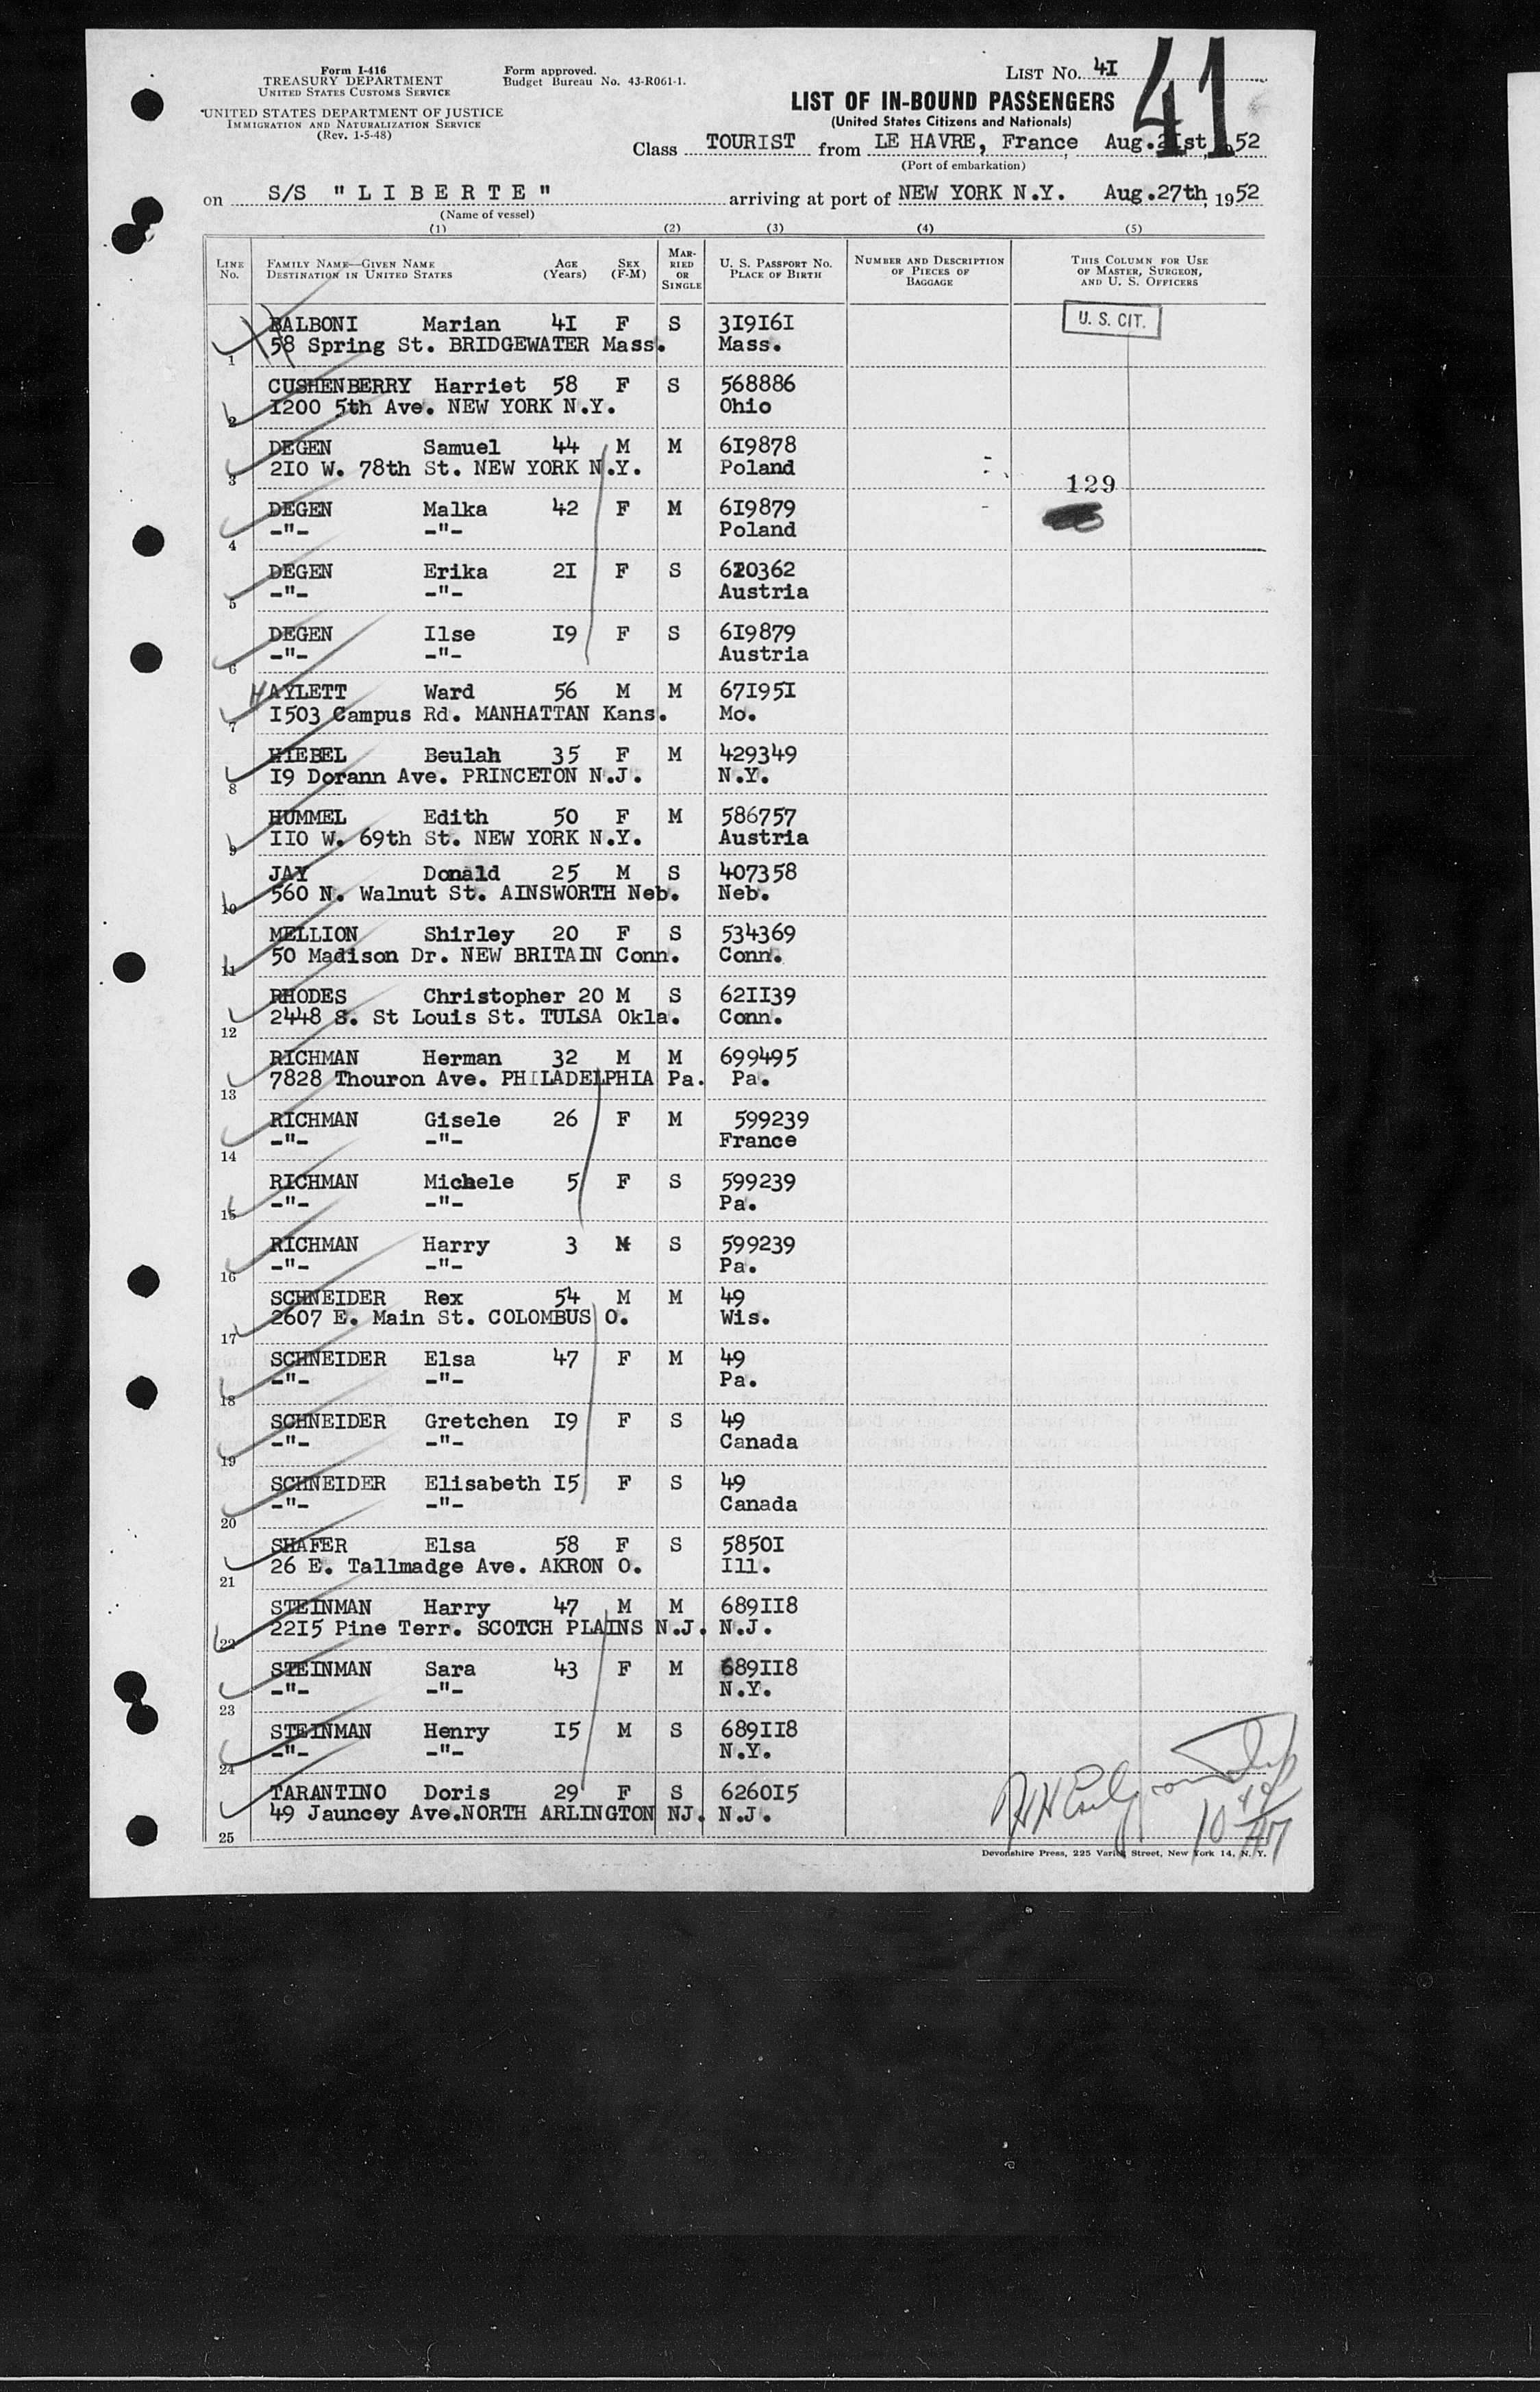 Form I-416
TREASURY DEPARTMENT
UNITED STATES CUSTOMS SERVICE
UNITED STATES DEPARTMENT OF JUSTICE
IMMIGRATION AND NATURALIZATION SERVICE
(Rev. 1-5-48)
Form approved.
Budget Bureau No. 43-R061-1.
LIST No. 41
41
LIST OF IN-BOUND PASSENGERS
(United States Citizens and Nationals)
Class TOURIST from LE HAVRE, France Aug.21st, 52
(Port of embarkation)
on S/S "LIBERTE" arriving at port of NEW YORK N.Y. Aug.27th, 1952
(Name of vessel)
(1) (2) (3) (4) (5)
LINE No. FAMILY NAME—GIVEN NAME DESTINATION IN UNITED STATES AGE (Years) SEX (F-M) MARRIED OR SINGLE U. S. PASSPORT NO. PLACE OF BIRTH NUMBER AND DESCRIPTION OF PIECES OF BAGGAGE THIS COLUMN FOR USE OF MASTER, SURGEON, AND U. S. OFFICERS
BALBONI Marian 41 F S 319161 U. S. CIT.
1 58 Spring St. BRIDGEWATER Mass. Mass.
CUSHENBERRY Harriet 58 F S 568886
2 1200 5th Ave. NEW YORK N.Y. Ohio
DEGEN Samuel 44 M M 619878
3 210 W. 78th St. NEW YORK N.Y. Poland
129
DEGEN Malka 42 F M 619879
4 -"- -"- Poland
DEGEN Erika 21 F S 620362
5 -"- -"- Austria
DEGEN Ilse 19 F S 619879
6 -"- -"- Austria
HAYLETT Ward 56 M M 671951
7 1503 Campus Rd. MANHATTAN Kans. Mo.
HIEBEL Beulah 35 F M 429349
8 19 Dorann Ave. PRINCETON N.J. N.Y.
HUMMEL Edith 50 F M 586757
9 110 W. 69th St. NEW YORK N.Y. Austria
JAY Donald 25 M S 407358
10 560 N. Walnut St. AINSWORTH Neb. Neb.
MELLION Shirley 20 F S 534369
11 50 Madison Dr. NEW BRITAIN Conn. Conn.
RHODES Christopher 20 M S 621139
12 2448 S. St Louis St. TULSA Okla. Conn.
RICHMAN Herman 32 M M 699495
13 7828 Thouron Ave. PHILADELPHIA Pa. Pa.
RICHMAN Gisele 26 F M 599239
14 -"- -"- France
RICHMAN Michele 5 F S 599239
15 -"- -"- Pa.
RICHMAN Harry 3 M S 599239
16 -"- -"- Pa.
SCHNEIDER Rex 54 M M 49
17 2607 E. Main St. COLOMBUS O. Wis.
SCHNEIDER Elsa 47 F M 49
18 -"- -"- Pa.
SCHNEIDER Gretchen 19 F S 49
19 -"- -"- Canada
SCHNEIDER Elisabeth 15 F S 49
20 -"- -"- Canada
SHAFER Elsa 58 F S 58501
21 26 E. Tallmadge Ave. AKRON O. Ill.
STEINMAN Harry 47 M M 689118
22 2215 Pine Terr. SCOTCH PLAINS N.J. N.J.
STEINMAN Sara 43 F M 689118
23 -"- -"- N.Y.
STEINMAN Henry 15 M S 689118
24 -"- -"- N.Y.
TARANTINO Doris 29 F S 626015
25 49 Jauncey Ave.NORTH ARLINGTON NJ. N.J.
Devonshire Press, 225 Varick Street, New York 14, N. Y.